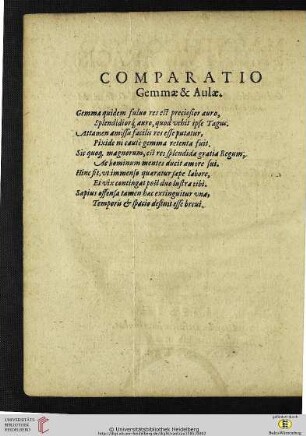 COMPARATIO
Gemmæ & Aulæ.
Gemma quidem fuluo res est preciosior auro,
Splendidiorq́; auro, quod vehit ipse Tagus.
Attamen amissu facilis res esse putatur,
Pixide ni caute gemma retenta fuit.
Sic quoq; magnorum, est res splendida gratia Regum,
Ac hominum mentes ducit amore sui.
Hinc fit, vt immenso quæratur sæpe labore,
Et vix contingat post duo lustra tibi.
Sæpius offensa tamen hæc extinguitur vna,
Temporis & spacio desinit esse breui.
UNIVERSITÄTS-
BIBLIOTHEK
HEIDELBERG
© Universitätsbibliothek Heidelberg
Baden-Württemberg